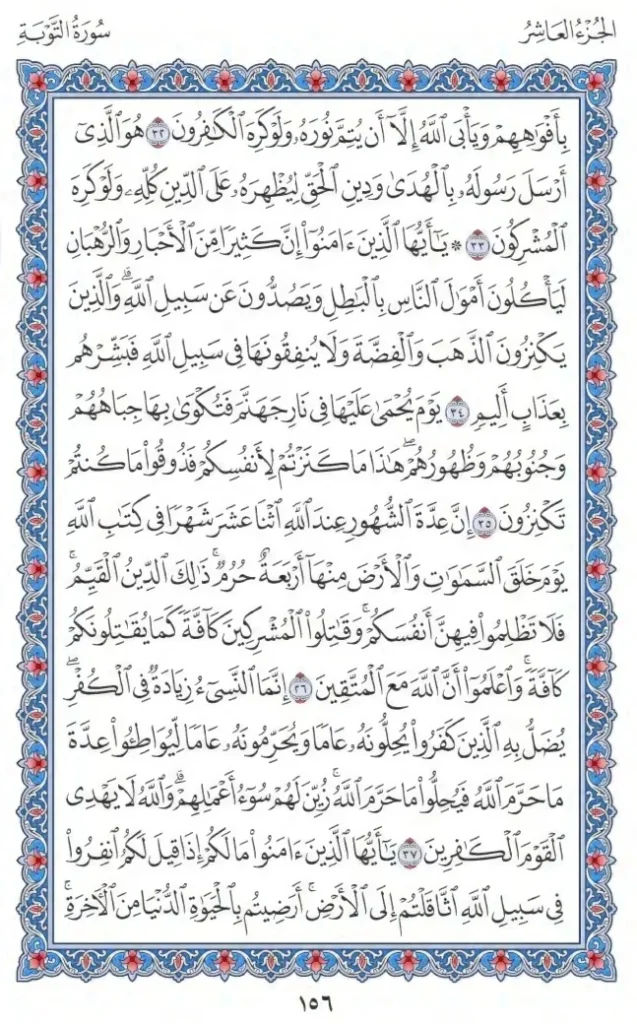 الجُزْءُ العَاشِرُ
سُورَةُ التَّوْبَةِ
بِأَفْوَٰهِهِمْ وَيَأْبَى ٱللَّهُ إِلَّآ أَن يُتِمَّ نُورَهُۥ وَلَوْ كَرِهَ ٱلْكَٰفِرُونَ ٣٢ هُوَ ٱلَّذِىٓ
أَرْسَلَ رَسُولَهُۥ بِٱلْهُدَىٰ وَدِينِ ٱلْحَقِّ لِيُظْهِرَهُۥ عَلَى ٱلدِّينِ كُلِّهِۦ وَلَوْ كَرِهَ
ٱلْمُشْرِكُونَ ٣٣ ۞ يَٰٓأَيُّهَا ٱلَّذِينَ ءَامَنُوٓا۟ إِنَّ كَثِيرًا مِّنَ ٱلْأَحْبَارِ وَٱلرُّهْبَانِ
لَيَأْكُلُونَ أَمْوَٰلَ ٱلنَّاسِ بِٱلْبَٰطِلِ وَيَصُدُّونَ عَن سَبِيلِ ٱللَّهِ ۗ وَٱلَّذِينَ
يَكْنِزُونَ ٱلذَّهَبَ وَٱلْفِضَّةَ وَلَا يُنفِقُونَهَا فِى سَبِيلِ ٱللَّهِ فَبَشِّرْهُم
بِعَذَابٍ أَلِيمٍ ٣٤ يَوْمَ يُحْمَىٰ عَلَيْهَا فِى نَارِ جَهَنَّمَ فَتُكْوَىٰ بِهَا جِبَاهُهُمْ
وَجُنُوبُهُمْ وَظُهُورُهُمْ ۖ هَٰذَا مَا كَنَزْتُمْ لِأَنفُسِكُمْ فَذُوقُوا۟ مَا كُنتُمْ
تَكْنِزُونَ ٣٥ إِنَّ عِدَّةَ ٱلشُّهُورِ عِندَ ٱللَّهِ ٱثْنَا عَشَرَ شَهْرًا فِى كِتَٰبِ ٱللَّهِ
يَوْمَ خَلَقَ ٱلسَّمَٰوَٰتِ وَٱلْأَرْضَ مِنْهَآ أَرْبَعَةٌ حُرُمٌ ۚ ذَٰلِكَ ٱلدِّينُ ٱلْقَيِّمُ ۚ
فَلَا تَظْلِمُوا۟ فِيهِنَّ أَنفُسَكُمْ ۚ وَقَٰتِلُوا۟ ٱلْمُشْرِكِينَ كَآفَّةً كَمَا يُقَٰتِلُونَكُمْ
كَآفَّةً ۚ وَٱعْلَمُوٓا۟ أَنَّ ٱللَّهَ مَعَ ٱلْمُتَّقِينَ ٣٦ إِنَّمَا ٱلنَّسِىٓءُ زِيَادَةٌ فِى ٱلْكُفْرِ ۖ
يُضَلُّ بِهِ ٱلَّذِينَ كَفَرُوا۟ يُحِلُّونَهُۥ عَامًا وَيُحَرِّمُونَهُۥ عَامًا لِّيُوَاطِـُٔوا۟ عِدَّةَ
مَا حَرَّمَ ٱللَّهُ فَيُحِلُّوا۟ مَا حَرَّمَ ٱللَّهُ ۚ زُيِّنَ لَهُمْ سُوٓءُ أَعْمَٰلِهِمْ ۗ وَٱللَّهُ لَا يَهْدِى
ٱلْقَوْمَ ٱلْكَٰفِرِينَ ٣٧ يَٰٓأَيُّهَا ٱلَّذِينَ ءَامَنُوا۟ مَا لَكُمْ إِذَا قِيلَ لَكُمُ ٱنفِرُوا۟
فِى سَبِيلِ ٱللَّهِ ٱثَّاقَلْتُمْ إِلَى ٱلْأَرْضِ ۚ أَرَضِيتُم بِٱلْحَيَوٰةِ ٱلدُّنْيَا مِنَ ٱلْءَاخِرَةِ ۚ
١٥٦